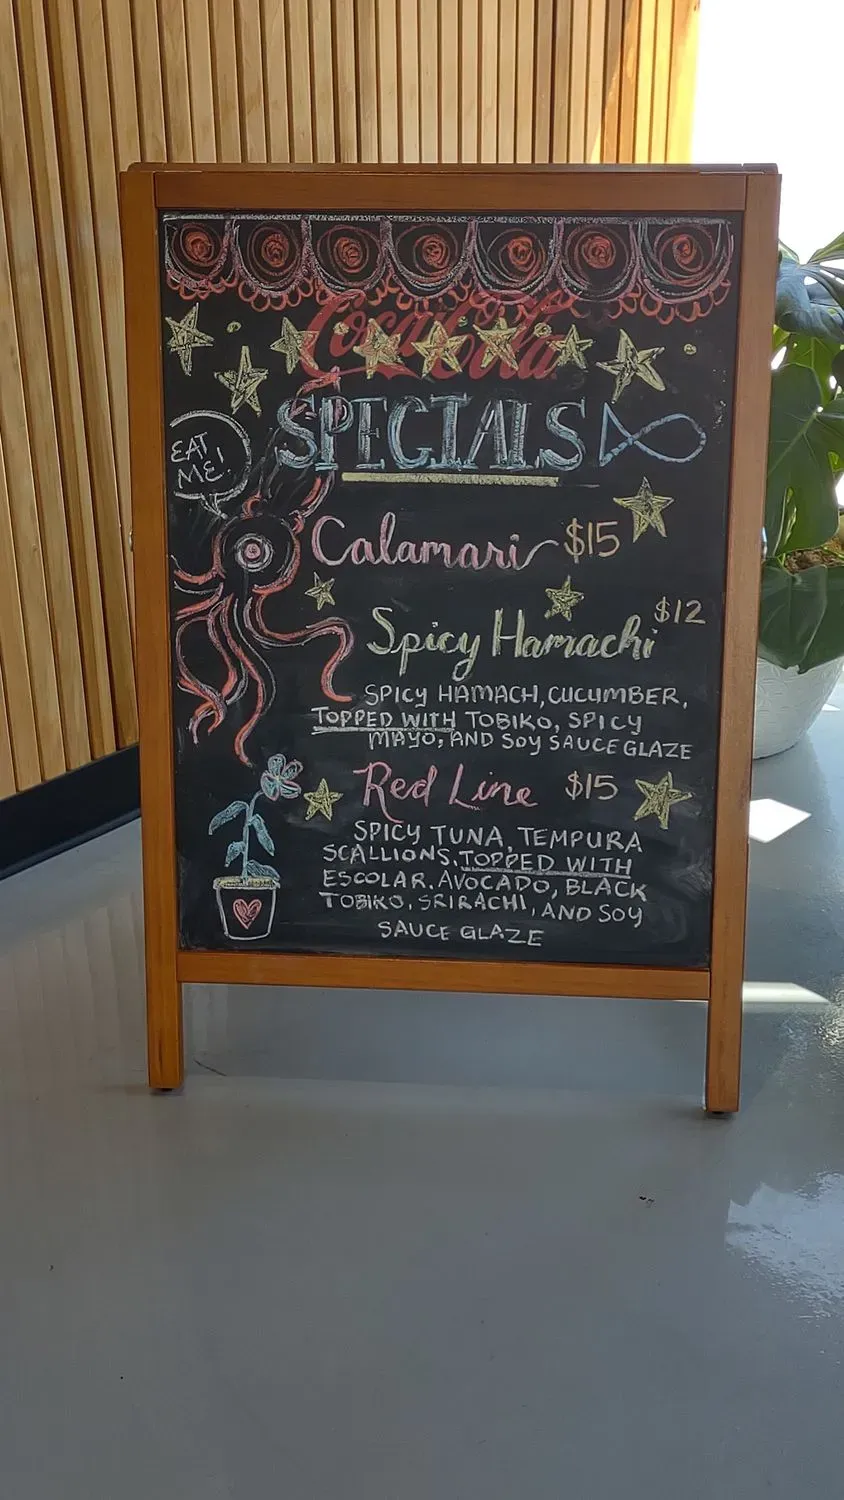 Coca-Cola
SPECIALS
EAT
ME!
Calamari $15
Spicy Hamachi $12
SPICY HAMACH, CUCUMBER,
TOPPED WITH TOBIKO, SPICY
MAYO, AND SOY SAUCE GLAZE
Red Line $15
SPICY TUNA, TEMPURA
SCALLIONS, TOPPED WITH
ESCOLAR, AVOCADO, BLACK
TOBIKO, SRIRACHI, AND SOY
SAUCE GLAZE